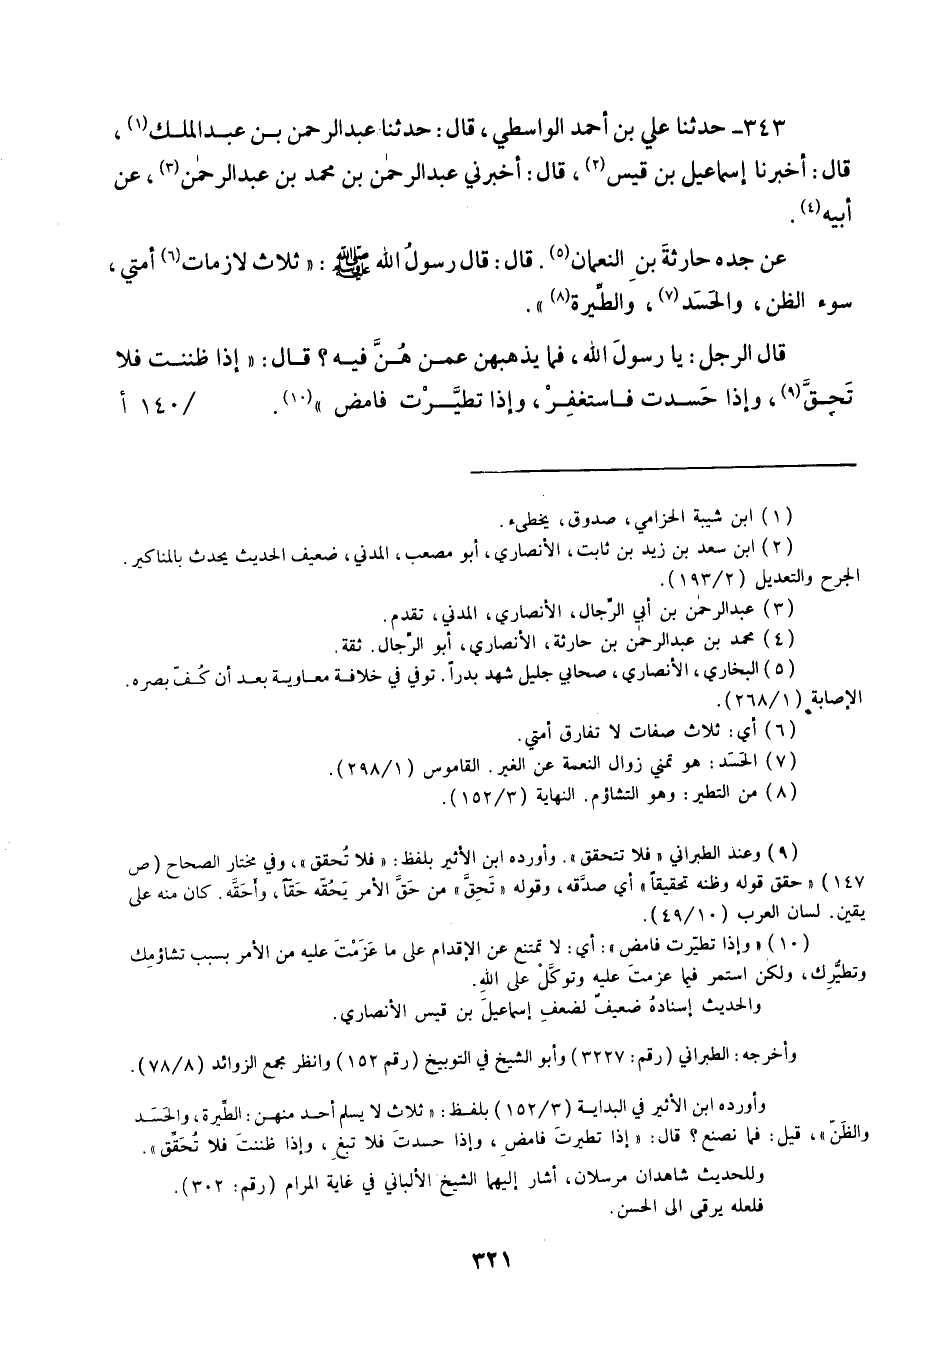 ٣٤٣ـ حدثنا علي بن أحمد الواسطي، قال: حدثنا عبدالرحمن بن عبدالملك(١)،
قال: أخبرنا إسماعيل بن قيس(٢)، قال: أخبرني عبدالرحمٰن بن محمد بن عبدالرحمٰن(٣)، عن
أبيه(٤).
عن جده حارثةَ بنِ النعمان(٥). قال: قال رسولُ الله ﷺ: «ثلاث لازمات(٦) أمتي،
سوء الظن، والحَسَد(٧)، والطِّيرة(٨)».
قال الرجل: يا رسولَ الله، فما يذهبهن عمن هُنَّ فيه؟ قال: «إذا ظننت فلا
تَحِقَّ(٩)، وإذا حَسدت فاستغفِرْ، وإذا تطيَّرْت فامض»(١٠). /١٤٠ أ
(١) ابن شيبة الحزامي، صدوق، يخطىء.
(٢) ابن سعد بن زيد بن ثابت، الأنصاري، أبو مصعب، المدني، ضعيف الحديث يحدث بالمناكير.
الجرح والتعديل (١٩٣/٢).
(٣) عبدالرحمٰن بن أبي الرِّجال، الأنصاري، المدني، تقدم.
(٤) محمد بن عبدالرحمٰن بن حارثة، الأنصاري، أبو الرِّجال. ثقة.
(٥) البخاري، الأنصاري، صحابي جليل شهد بدراً. توفي في خلافة معاوية بعد أن كُفّ بصره.
الإصابة (٢٦٨/١).
(٦) أي: ثلاث صفات لا تفارق أمتي.
(٧) الحَسَد: هو تمني زوال النعمة عن الغير. القاموس (٢٩٨/١).
(٨) من التطير: وهو التشاؤم. النهاية (١٥٢/٣).
(٩) وعند الطبراني «فلا تتحقق». وأورده ابن الأثير بلفظ: «فلا تُحقق»، وفي مختار الصحاح (ص
١٤٧) «حقق قوله وظنه تحقيقاً» أي صدَّقه، وقوله «تَحِقَّ» من حَقَّ الأمر يَحُقّه حَقّاً، وأَحَقَّه. كان منه على
يقين. لسان العرب (٤٩/١٠).
(١٠) «وإذا تطيّرت فامض»: أي: لا تمتنع عن الإقدام على ما عَزَمْتَ عليه من الأمر بسبب تشاؤمك
وتطيُّرك، ولكن استمر فيما عزمتَ عليه وتوكَّلْ على اللهِ.
والحديث إسنادهُ ضعيفٌ لضعفِ إسماعيلَ بن قيس الأنصاري.
وأخرجه: الطبراني (رقم: ٣٢٢٧) وأبو الشيخ في التوبيخ (رقم ١٥٢) وانظر مجمع الزوائد (٧٨/٨).
وأورده ابن الأثير في البداية (١٥٢/٣) بلفظ: «ثلاث لا يسلم أحد منهن: الطِّيرة، والحَسَد
والظَنّ»، قيل: فما نصنع؟ قال: «إذا تطيرتَ فامضِ، وإذا حسدتَ فلا تبغِ، وإذا ظننتَ فلا تُحَقِّق».
وللحديث شاهدان مرسلان، أشار إليهما الشيخ الألباني في غاية المرام (رقم: ٣٠٢).
فلعله يرقى الى الحسن.
٣٢١